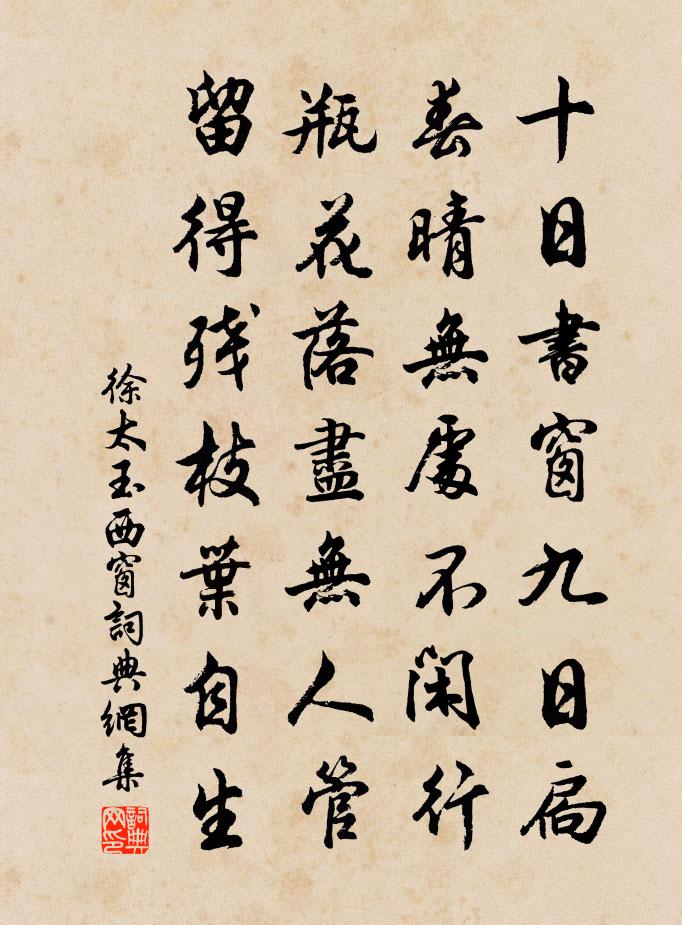 十日書窗九日扃
春晴無處不閑行
瓶花落盡無人管
留得残枝葉自生
徐太玉西窗詞典網集
詞典网印